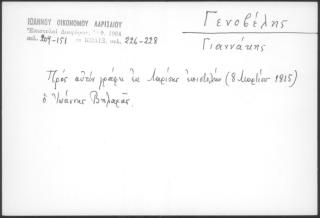 ΙΩΑΝΝΟΥ ΟΙΚΟΝΟΜΟΥ ΛΑΡΙΣΑΙΟΥ
Ἐπιστολαὶ Διαφόρων, 1964
σελ. 149-151 σελ. 226-228
Γενοβέλης
Γιαννάκης
Πρὸς αὐτὸν γράφει ἐκ Λαρίσης ἐπιστολὴν (8 Μαρτίου 1815)
ὁ Ἰωάννης Βηλαρᾶς.